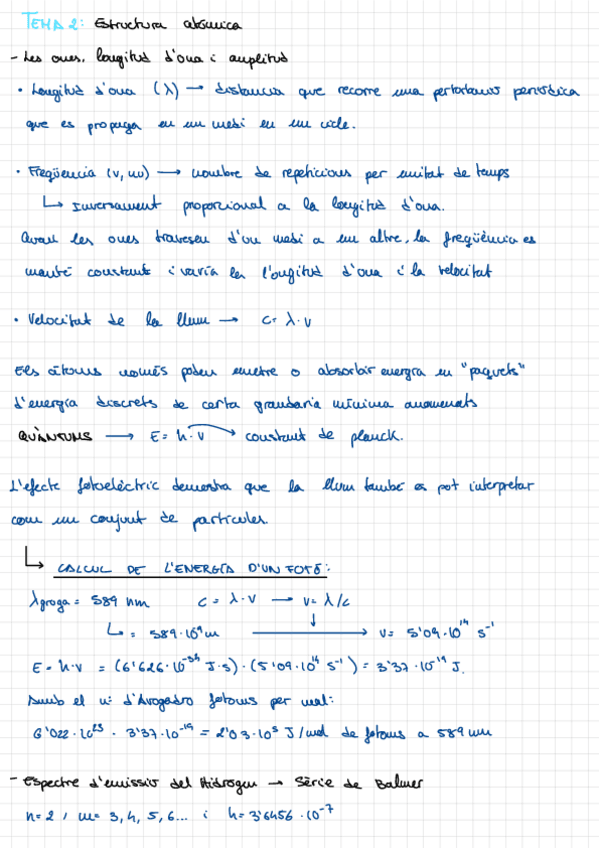 TEMA 2: Estructura atòmica
- Les ones. longitud d'ona i amplitud
• Longitud d'ona (λ) → distancia que recorre una pertorbació periòdica
que es propaga en un medi en un cicle.
• Freqüencia (v, nu) → nombre de repeticions per unitat de temps
↳ Inversament proporcional a la longitud d'ona.
Quan les ones travesen d'un medi a un altre, la freqüència es
manté constant i varía la longitud d'ona i la velocitat
• Velocitat de la llum → c = λ·v
Els àtoms només poden emetre o absorbir energía en "paquets"
d'energía discrets de certa grandaria mínima anomenats
QUÀNTUMS → E = h·v → constant de planck.
L'efecte fotoelèctric demostra que la llum també es pot interpretar
com un conjunt de partícules.
↳ CALCUL DE L'ENERGÍA D'UN FOTÓ:
λgroga = 589 nm c = λ·v → v = λ/c
↳ = 589·10⁹ m → v = 5'09·10¹⁴ s⁻¹
E = h·v = (6'626·10⁻³⁴ J·s)·(5'09·10¹⁴ s⁻¹) = 3'37·10⁻¹⁹ J.
Amb el nº d'Avogadro fotons per mol:
6'022·10²³ · 3'37·10⁻¹⁹ = 2'03·10⁵ J/mol de fotons a 589 nm
- Espectre d'emissió del Hidrogen → Sèrie de Balmer
n = 2, m = 3, 4, 5, 6... i h = 3'6456·10⁻⁷